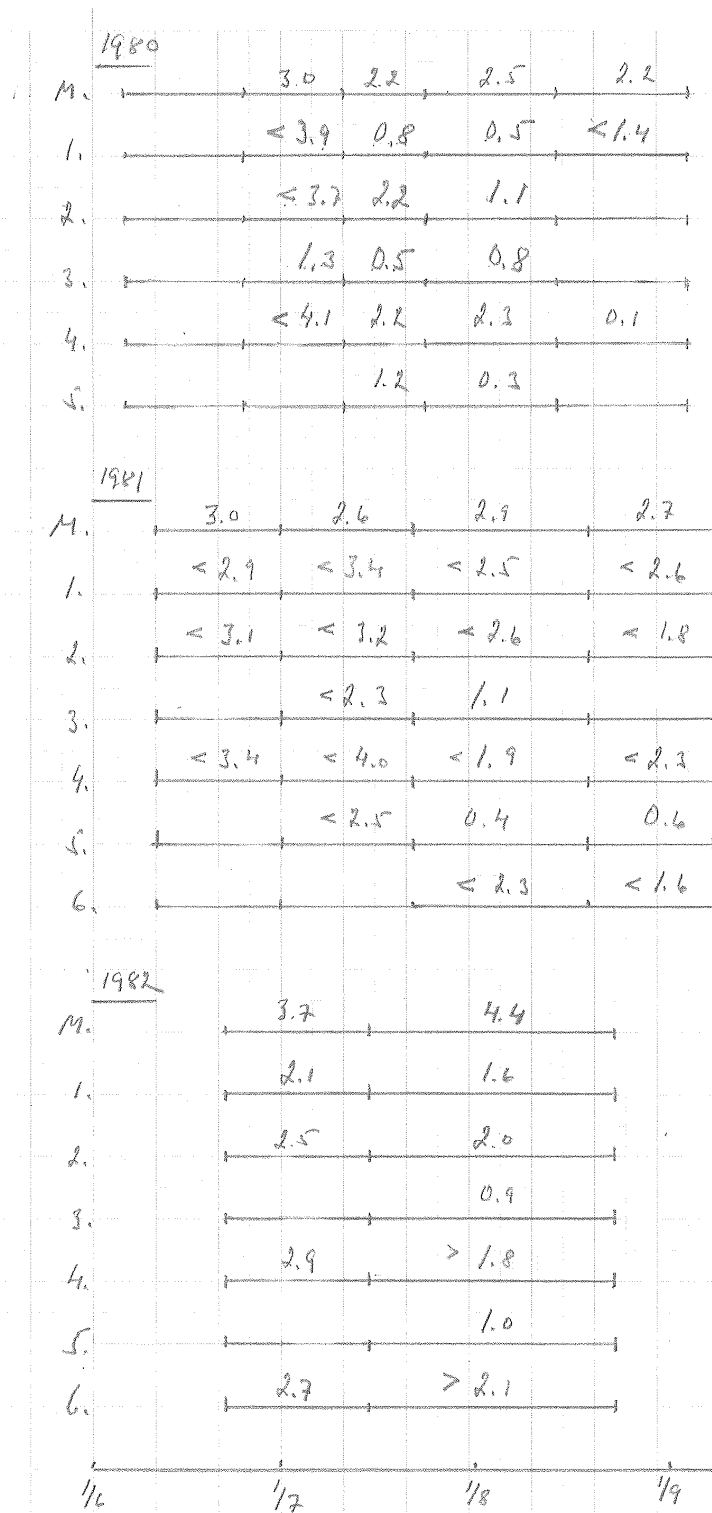 1980
M. 3.0 2.2 2.5 2.2
1. <3.9 0.8 0.5 <1.4
2. <3.7 2.2 1.1
3. 1.3 0.5 0.8
4. <4.1 2.2 2.3 0.1
5. 1.2 0.3
1981
M. 3.0 2.6 2.9 2.7
1. <2.9 <3.4 <2.5 <2.6
2. <3.1 <3.2 <2.6 <1.8
3. <2.3 1.1
4. <3.4 <4.0 <1.9 <2.3
5. <2.5 0.4 0.6
6. <2.3 <1.6
1982
M. 3.7 4.4
1. 2.1 1.6
2. 2.5 2.0
3. 0.9
4. 2.9 >1.8
5. 1.0
6. 2.7 >2.1
1/6 1/7 1/8 1/9